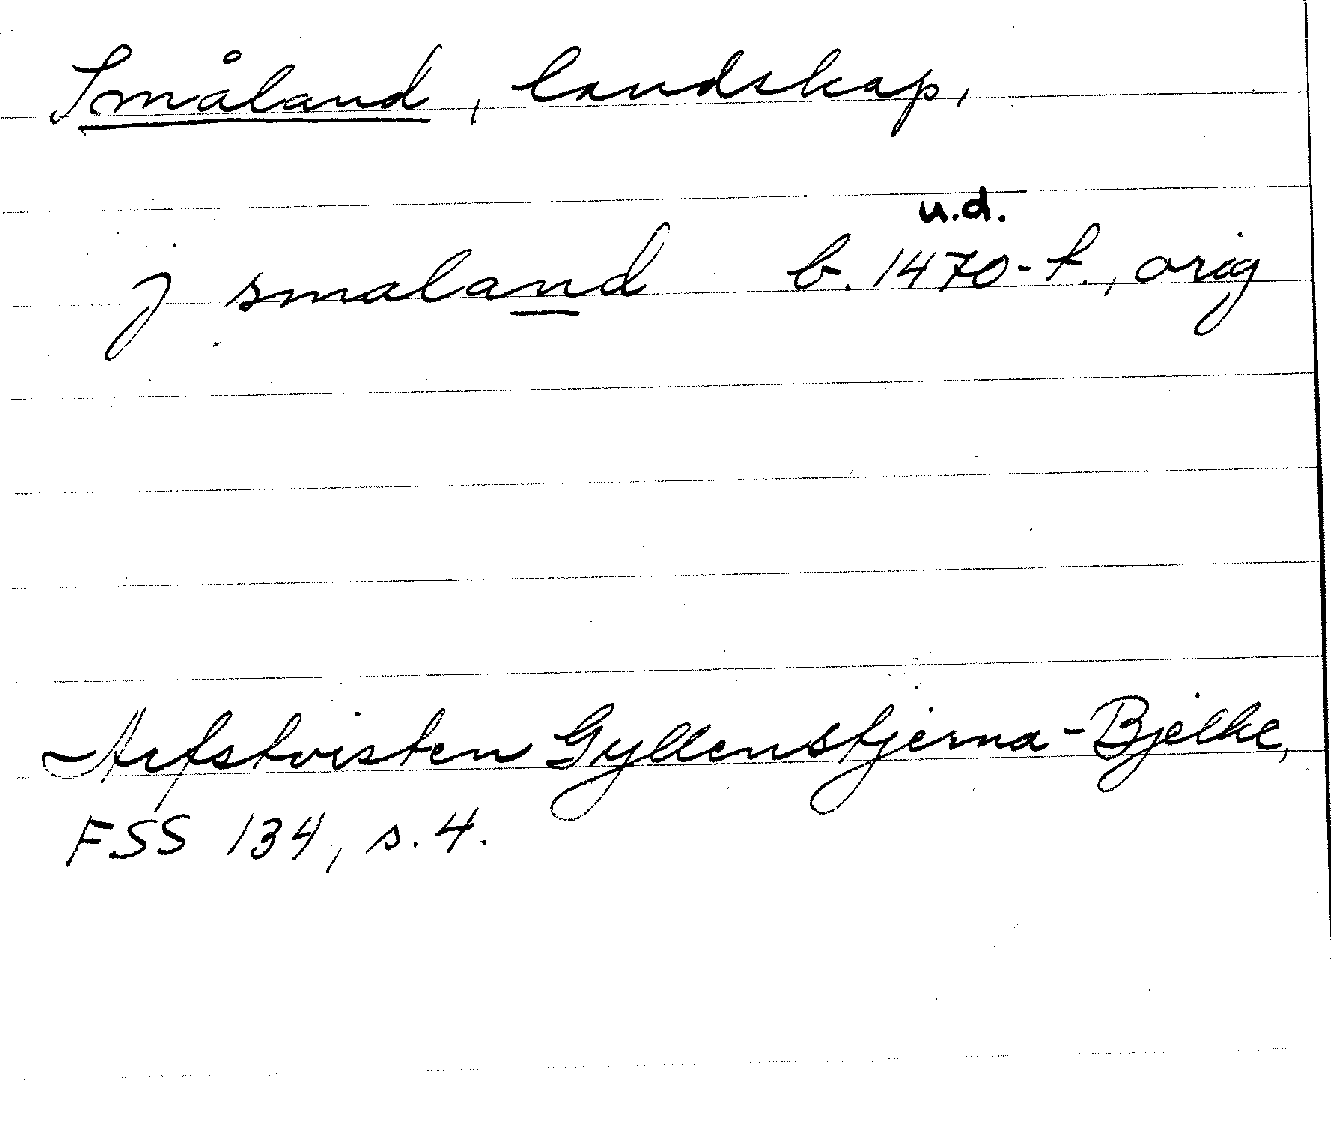 Småland, landskap,
u.d.
j smaland b. 1470-t., orig
Arfstvisten Gyllenstjerna-Bjelke,
FSS 134, s. 4.